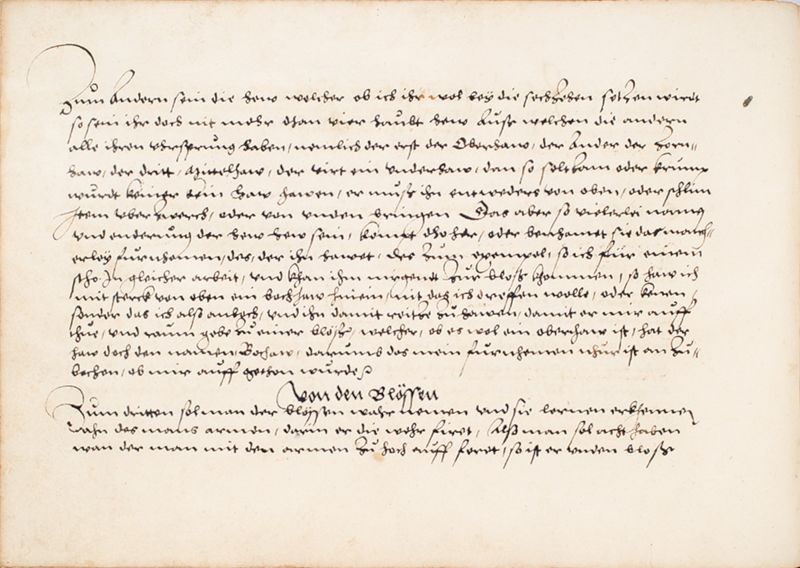 Zum Andern sein die hew welcher ob ich ihr wol bey die sechzehen setzen wirdt
so sein ihr doch nit mehr dhan vier haubt hew Ausz welchen die andern
alle ihren vhrsprung haben, nemlich der erst der Oberhaw, der Ander der Zorn-
haw, der dritt, Mittelhaw, der virt ein vnderhaw, dan so seltzam oder krump
wurdt keiner kein haw hawen, er musz ihn entweders von oben, oder schlim
vber zwerch, oder von vnden bringen Das aber so vielerlei namen
vnd enderung der hew hew sein, kömpt dho her, oder benhamet sie das manch-
erley furnhemen, des, der ihn hawet, des Zum exempel, so ich für einem
sthe In gleicher arbeit, vnd khan ihm nirgendt Zur blosz khommen, so haw ich
mit sterck von oben ein hoch haw hinein, nit das ich dreffen wolle, oder keren
sonder das ich alsz anboch, vnd ihn damit reitze Zu hawen, damit er mir auff
thue, vnd raum gebe Zu einer blösz, welcher, ob es wol ein oberhaw ist, hat der
haw doch den namen Bochaw, darumb das mein furnhemen nhur ist an Zu-
bochen, ob mir auff gethon wurde
Von den Blössen
Zum dritten sol man der blössen wahr nemen vnd sie lernen erkhennen
ahn des mans armen, darin er die wehr fieret, Alsz man sol acht haben
wan der man mit den armen Zu hoch auff feret, so ist er vnden blosz